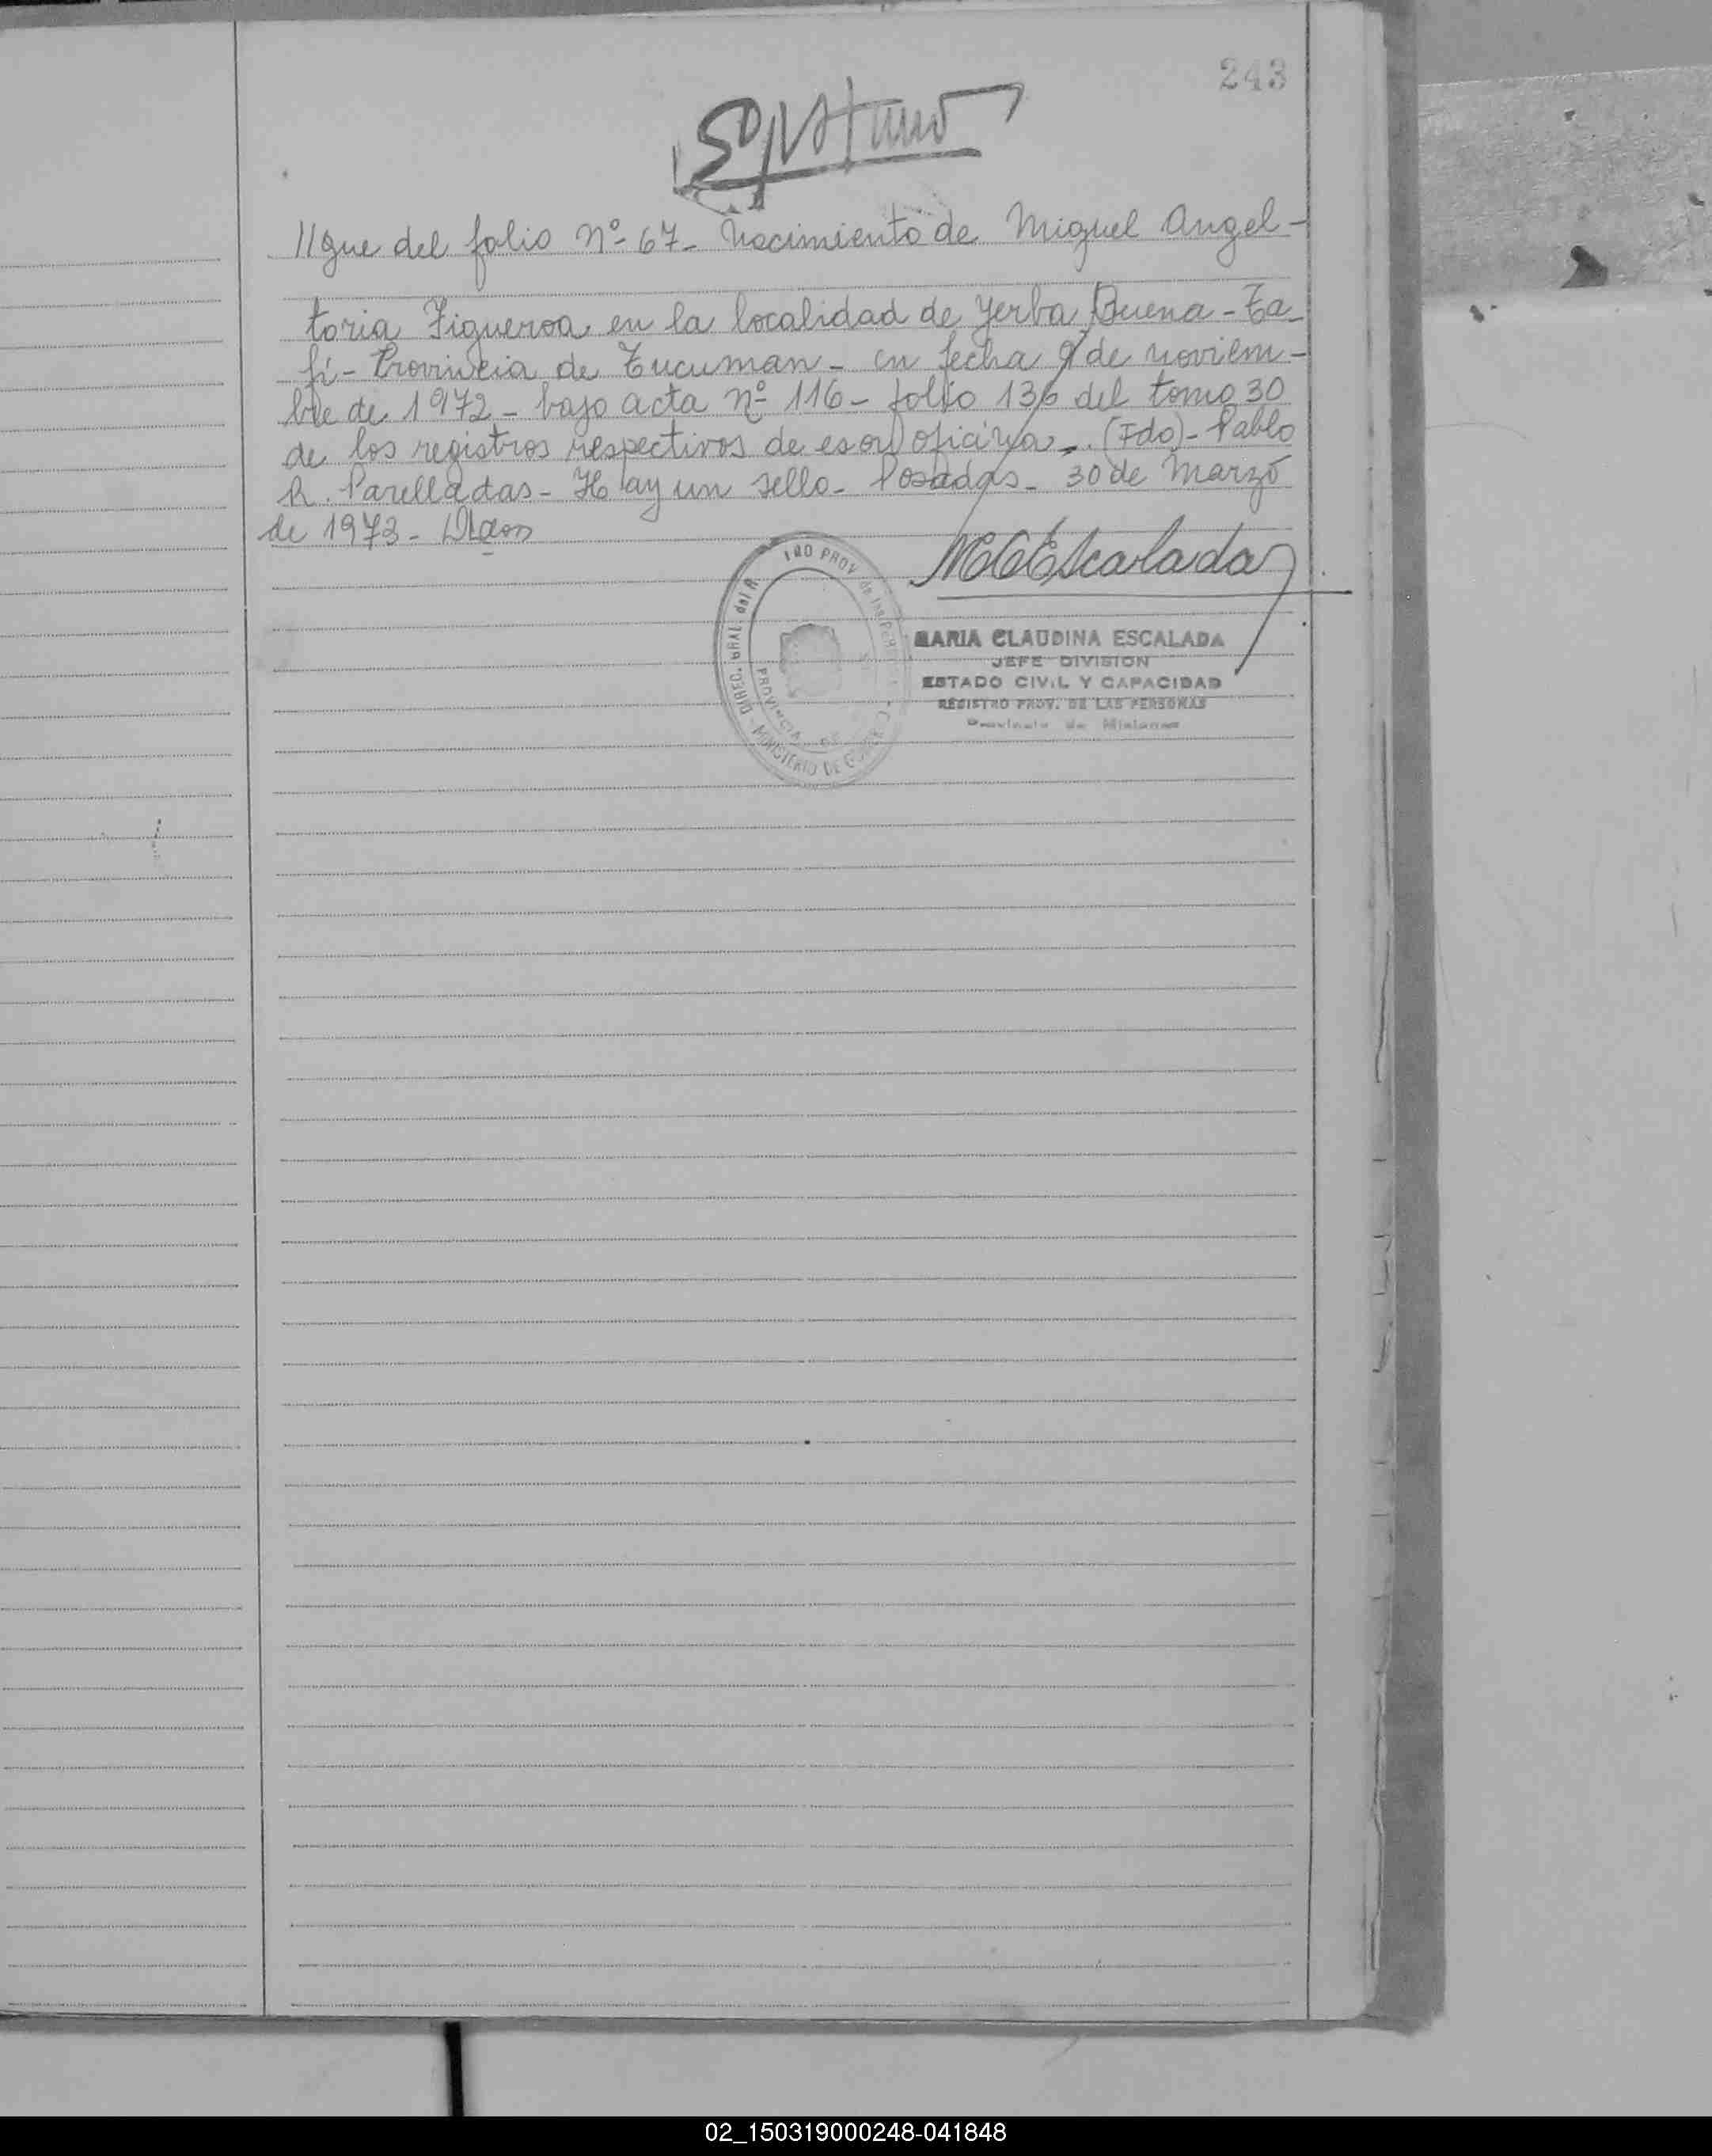 243
//gue del folio Nº 67- Nacimiento de Miguel Angel-
toria Figueroa en la localidad de Yerba Buena - Ta-
fí - Provincia de Tucuman - en fecha 9 de noviem-
bre de 1972 - bajo acta nº 116 - folio 136 del tomo 30
de los registros respectivos de esa oficina -. (Fdo) - Pablo
R. Parelladas - Hay un sello - Posadas - 30 de Marzo
de 1973 -
MCEscalada
MARIA CLAUDINA ESCALADA
JEFE DIVISION
ESTADO CIVIL Y CAPACIDAD
REGISTRO PROV. DE LAS PERSONAS
Provincia de Misiones
DIREC. GRAL. del R PROV. de las PER
MINISTERIO DE GOBIER
PROVINCIA DE
02_150319000248-041848